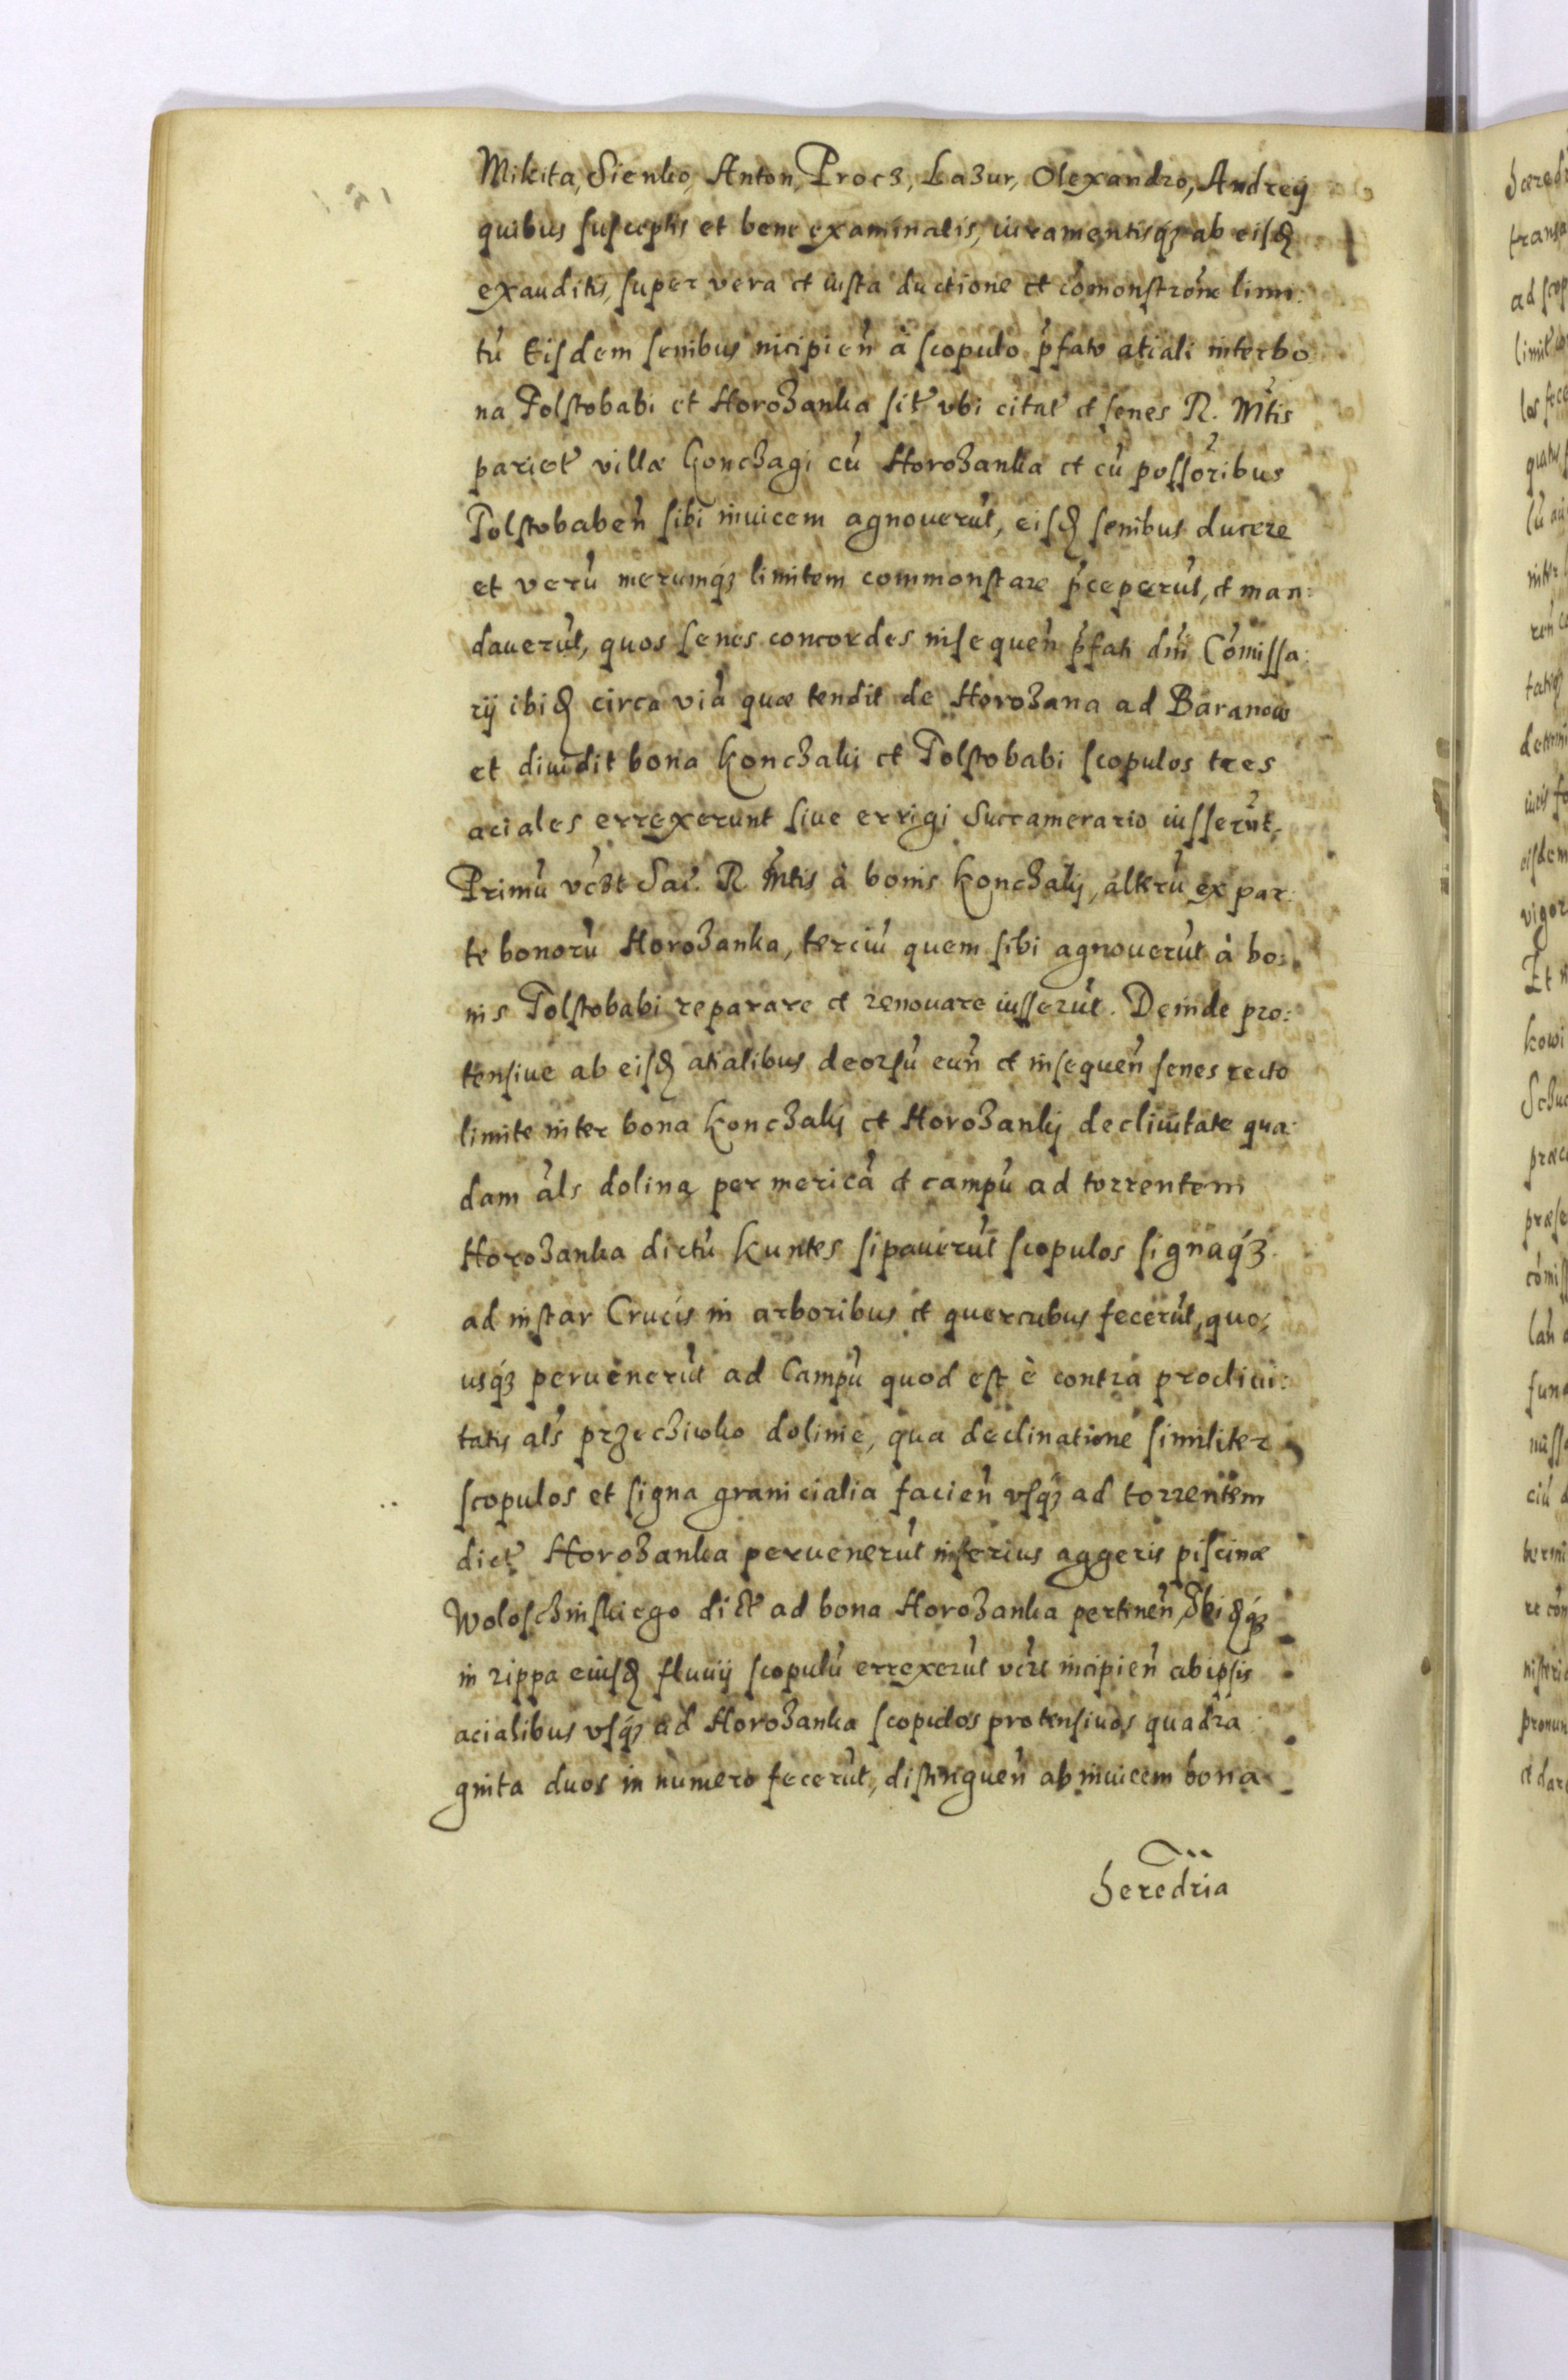 Mikita, Sienko, Anton, Procz, Lazur, Olexandro, Andreÿ
quibus susceptis et bene examinatis, iuramentisq́ꝫ ab eisꝺ
exauditis, super vera et iusta ductione et cōmonstrōne limi:
tū Eisdem senibus incipień à scopulo p̄fato atiali inter bo
na Tolstobabi et Horozanka sit̄ vbi citat̄ et senes R. Mt̄is
pariet̄ villæ Konczagi cū Horozanka et cū possōribus
Tolstobabeń sibi inuicem agnouerūt, eisꝺ senibus ducere
et verū merumq́ꝫ limitem commonstare p̄ceperūt, et man:
dauerūt, quos senes concordes insequeń p̄fati dn̄i Cōmissa:
rÿ ibiꝺ circa viā quæ tendit de Horozana ad Baranow
et diuidit bona Konczaki et Tolstobabi scopulos tres
aciales errexerunt siue errigi Succamerario iusserūt,
Primū vcꝫt Sac̄. R Mt̄is à bonis Konczakÿ, alterū ex par
te bonorū Horozanka, terciū quem sibi agnouerūt à bo:
nis Tolstobabi reparare et renouare iusserūt. Deinde pro:
tensiue ab eisꝺ atialibus deorsū euń et insequeń senes recto
limite inter bona Konczakÿ et Horozankÿ decliuitate qua
dam āls doliną per mericā et campū ad torrentem
Horozanka dictū Kuntes sipauerūt scopulos signaq́ꝫ
ad instar Crucis in arboribus et quercubus fecerūt, quo:
usq́ꝫ peruenerūt ad Campū quod est è contra procliui:
tatis als̄ przeciwko dolinie, qua declinatione similiter
scopulos et signa granicialia facień vsq́ꝫ ad torrentem
dict̄ Horozanka peruenerūt inferius aggeris piscinæ
Woloschinskiego dict̄ ad bona Horozanka pertineń, Ibiꝺq́ꝫ
in rippa eiusꝺ fluuÿ scopulū errexerūt vcꝫt incipień ab ipsis
acialibus vsq́ꝫ ad Horozanka scopulos protensiuos quadra
ginta duos in numero fecerūt, distingueń ab inuicem bona
heredria